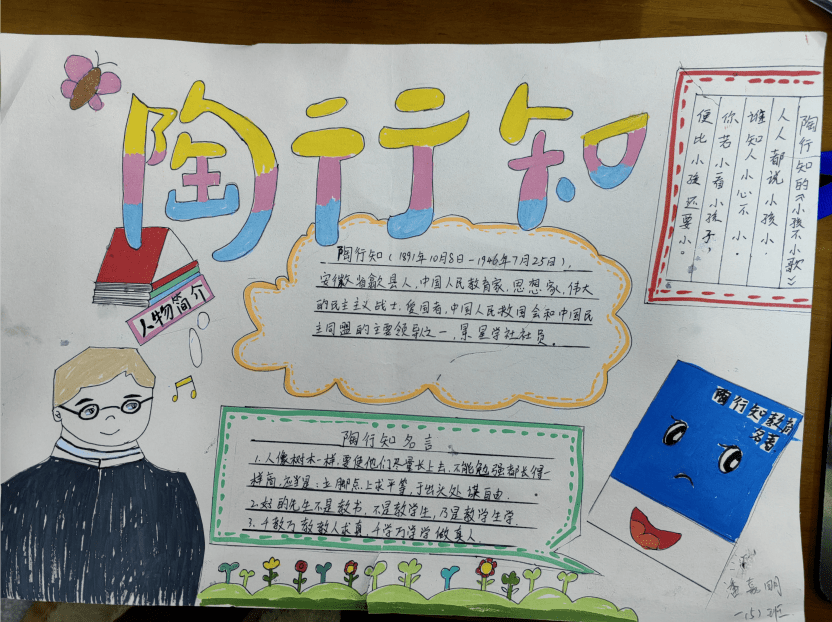 陶行知
陶行知的《小孩不小歌》
人人都说小孩小.
谁知人小心不小.
你若小看小孩子,
便比小孩还要小。
陶行知(1891年10月8日-1946年7月25日),
安徽省歙县人,中国人民教育家、思想家,伟大
的民主主义战士,爱国者,中国人民救国会和中国民
主同盟的主要领导之一,景星学社社员。
人物简介
陶行知名言
1.人像树木一样,要使他们尽量长上去,不能勉强都长得一
样高,应当是:立脚点上求平等,于出头处谋自由.
2.好的先生不是教书,不是教学生,乃是教学生学.
3.千教万教教人求真,千学万学学做真人.
陶行知教育
名著
潘嘉明
一(5)班